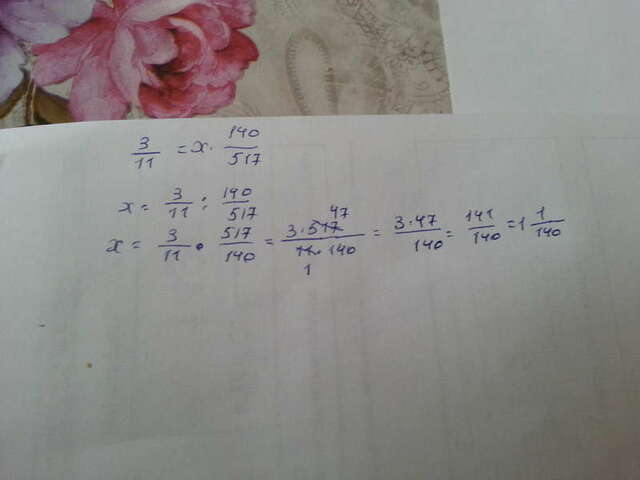 3/11 = x · 140/517
x = 3/11 : 140/517
x = 3/11 · 517/140 = 3·517 47/11·140 1 = 3·47/140 = 141/140 = 1 1/140